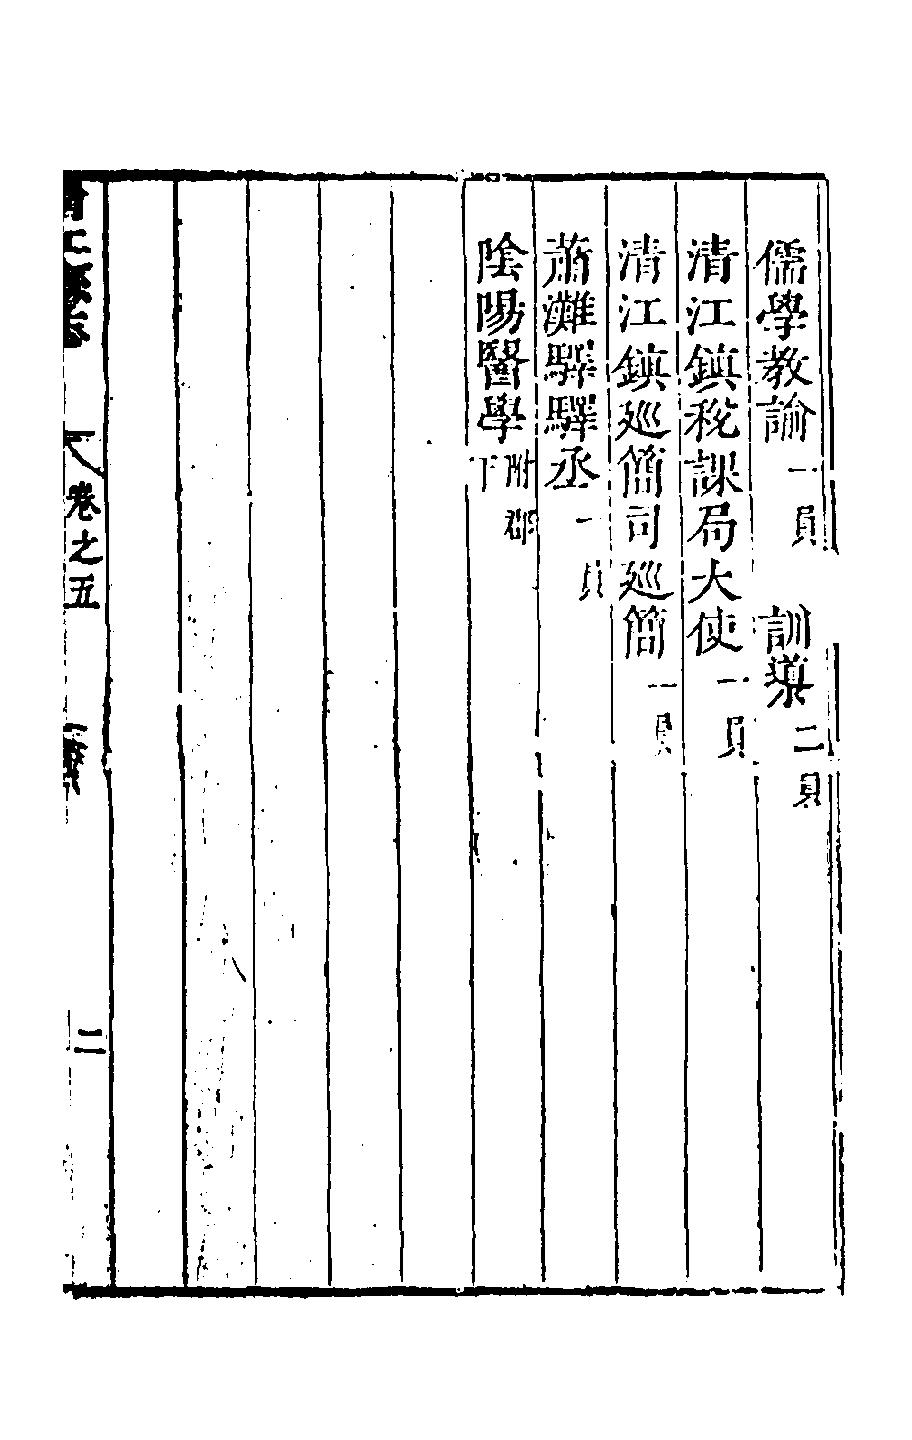 儒學教諭一員　訓導二員
清江鎮稅課局大使一員
清江鎮廵簡司廵簡一員
蕭灘驛驛丞一員
陰陽醫學附郡下
卷之五
二